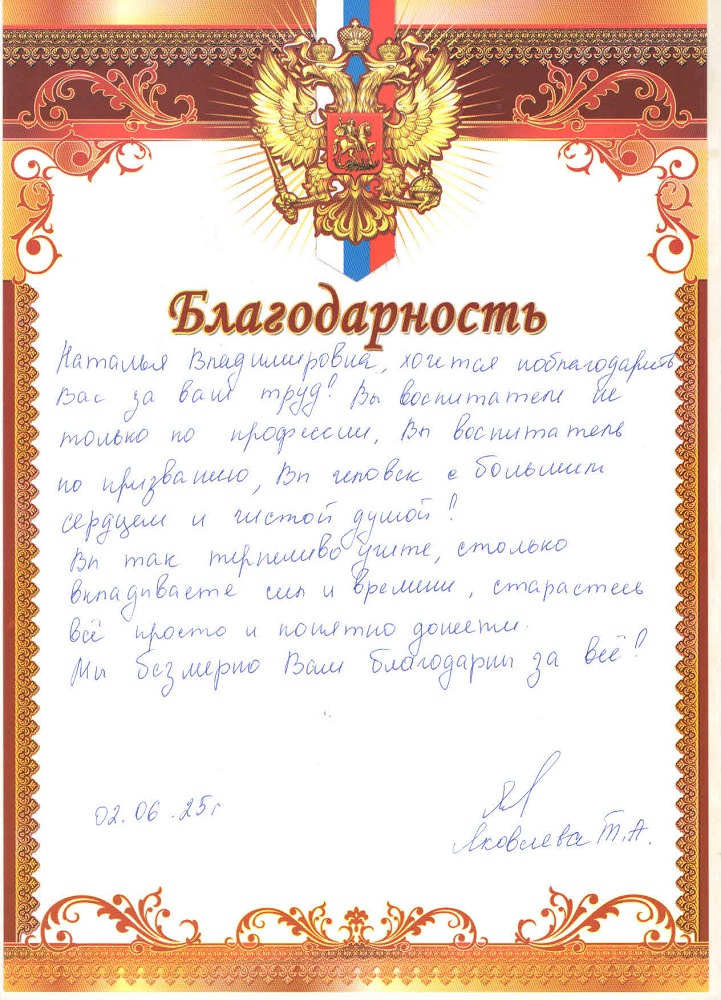 Благодарность
Наталья Владимировна, хочется поблагодарить
Вас за ваш труд! Вы воспитатель не
только по профессии, Вы воспитатель
по призванию, Вы человек с большим
сердцем и чистой душой!
Вы так терпеливо учите, столько
вкладываете сил и времени, стараетесь
всё просто и понятно донести.
Мы безмерно Вам благодарны за всё!
02.06.25г
Яковлева Т.А.